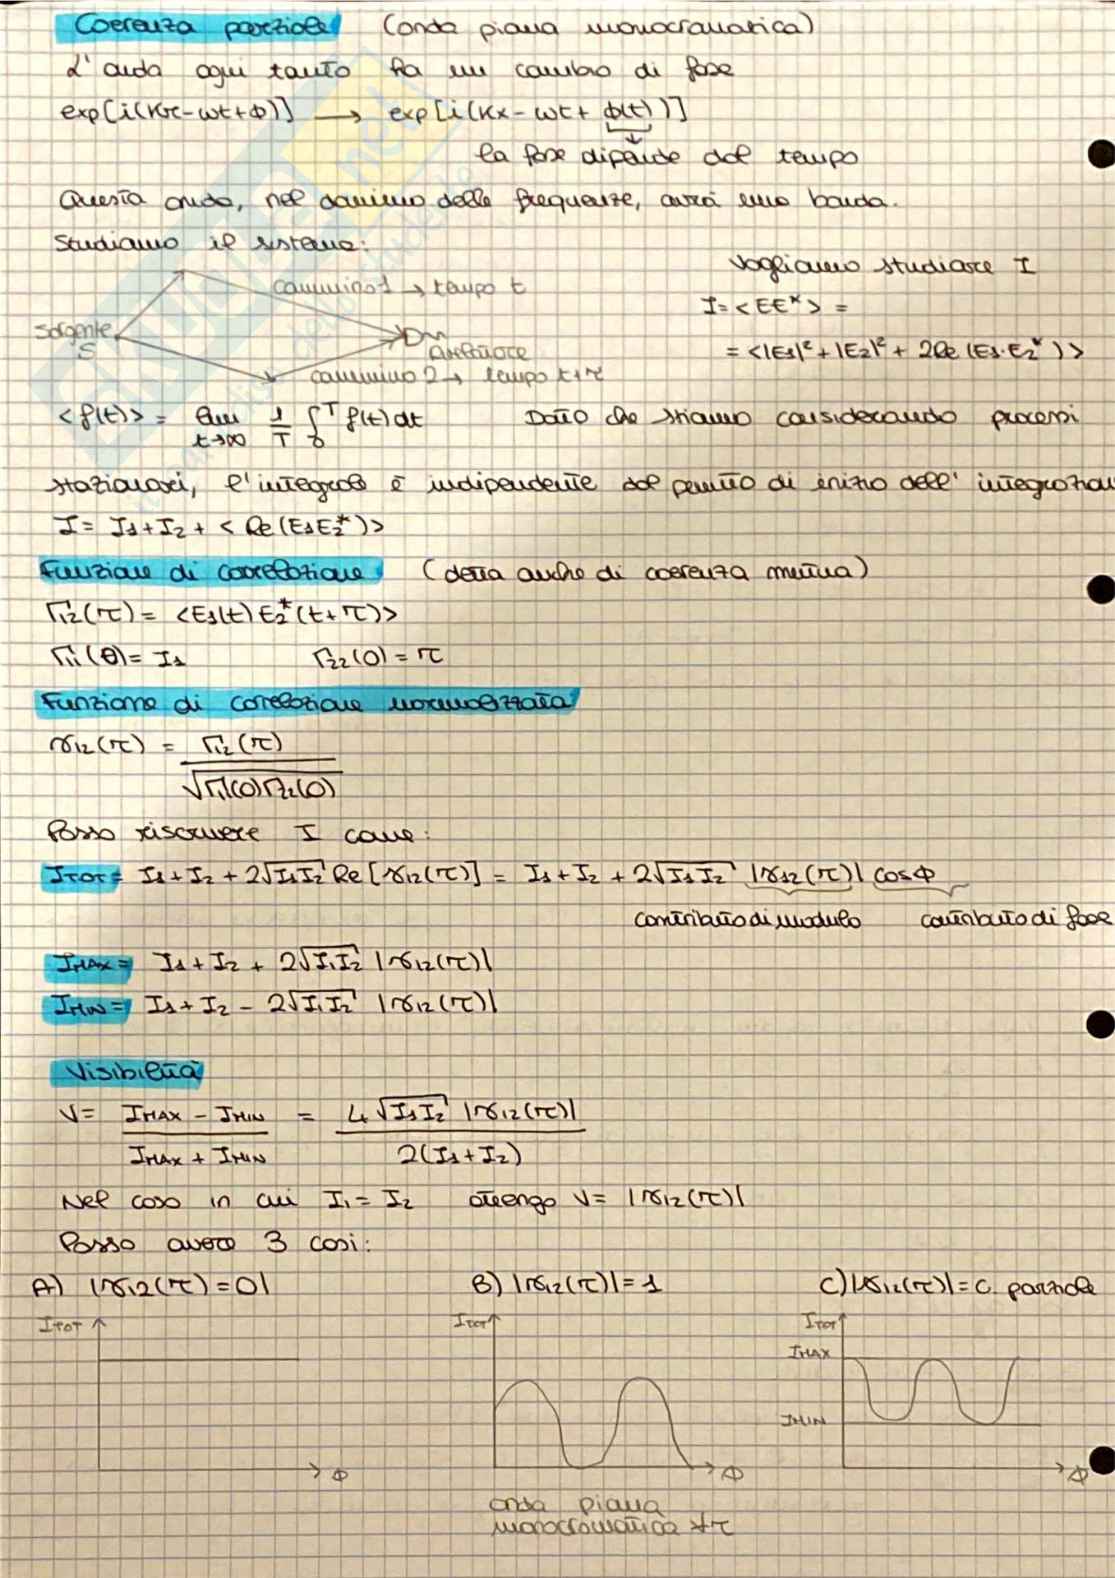 Coerenza parziale (onda piana monocromatica)
L'onda ogni tanto fa un cambio di fase
exp[i(Kx-ωt+Φ)] → exp[i(Kx-ωt+Φ(t))]
la fase dipende dal tempo
Questa onda, nel dominio delle frequenze, avrà una banda.
Studiamo il sistema:
Vogliamo studiare I
cammino 1 → tempo t
I=<EE*> =
Sorgente
S
= <|E1|²+|E2|²+ 2Re (E1·E2*)>
cammino 2 → tempo t+τ
<f(t)> = lim t→∞ 1/T ∫₀ᵀ f(t)dt Dato che stiamo considerando processi
stazionari, l'integrale è indipendente dal punto di inizio dell' integrazion
I= I1+I2+ < Re(E1E2*)>
Funzione di correlazione (detta anche di coerenza mutua)
Γ12(τ)= <E1(t)E2*(t+τ)>
Γ11(0)= I1 Γ22(0)=τ
Funzione di correlazione normalizzata
γ12(τ) = Γ12(τ) / √Γ11(0)Γ22(0)
Posso riscrivere I come:
ITOT= I1+I2+2√I1I2 Re[γ12(τ)] = I1+I2+2√I1I2 |γ12(τ)| cosΦ
contributo di modulo contributo di fase
IMAX= I1+I2+2√I1I2 |γ12(τ)|
IMIN= I1+I2-2√I1I2 |γ12(τ)|
Visibilità
V= IMAX - IMIN / IMAX + IMIN = 4√I1I2 |γ12(τ)| / 2(I1+I2)
Nel caso in cui I1=I2 ottengo V= |γ12(τ)|
Posso avere 3 casi:
A) |γ12(τ)=0| B) |γ12(τ)|=1 C)|γ12(τ)|=C. parziale
ITOT ITOT ITOT
IMAX
IMIN
Φ Φ Φ
onda piana
monocromatica ∀τ